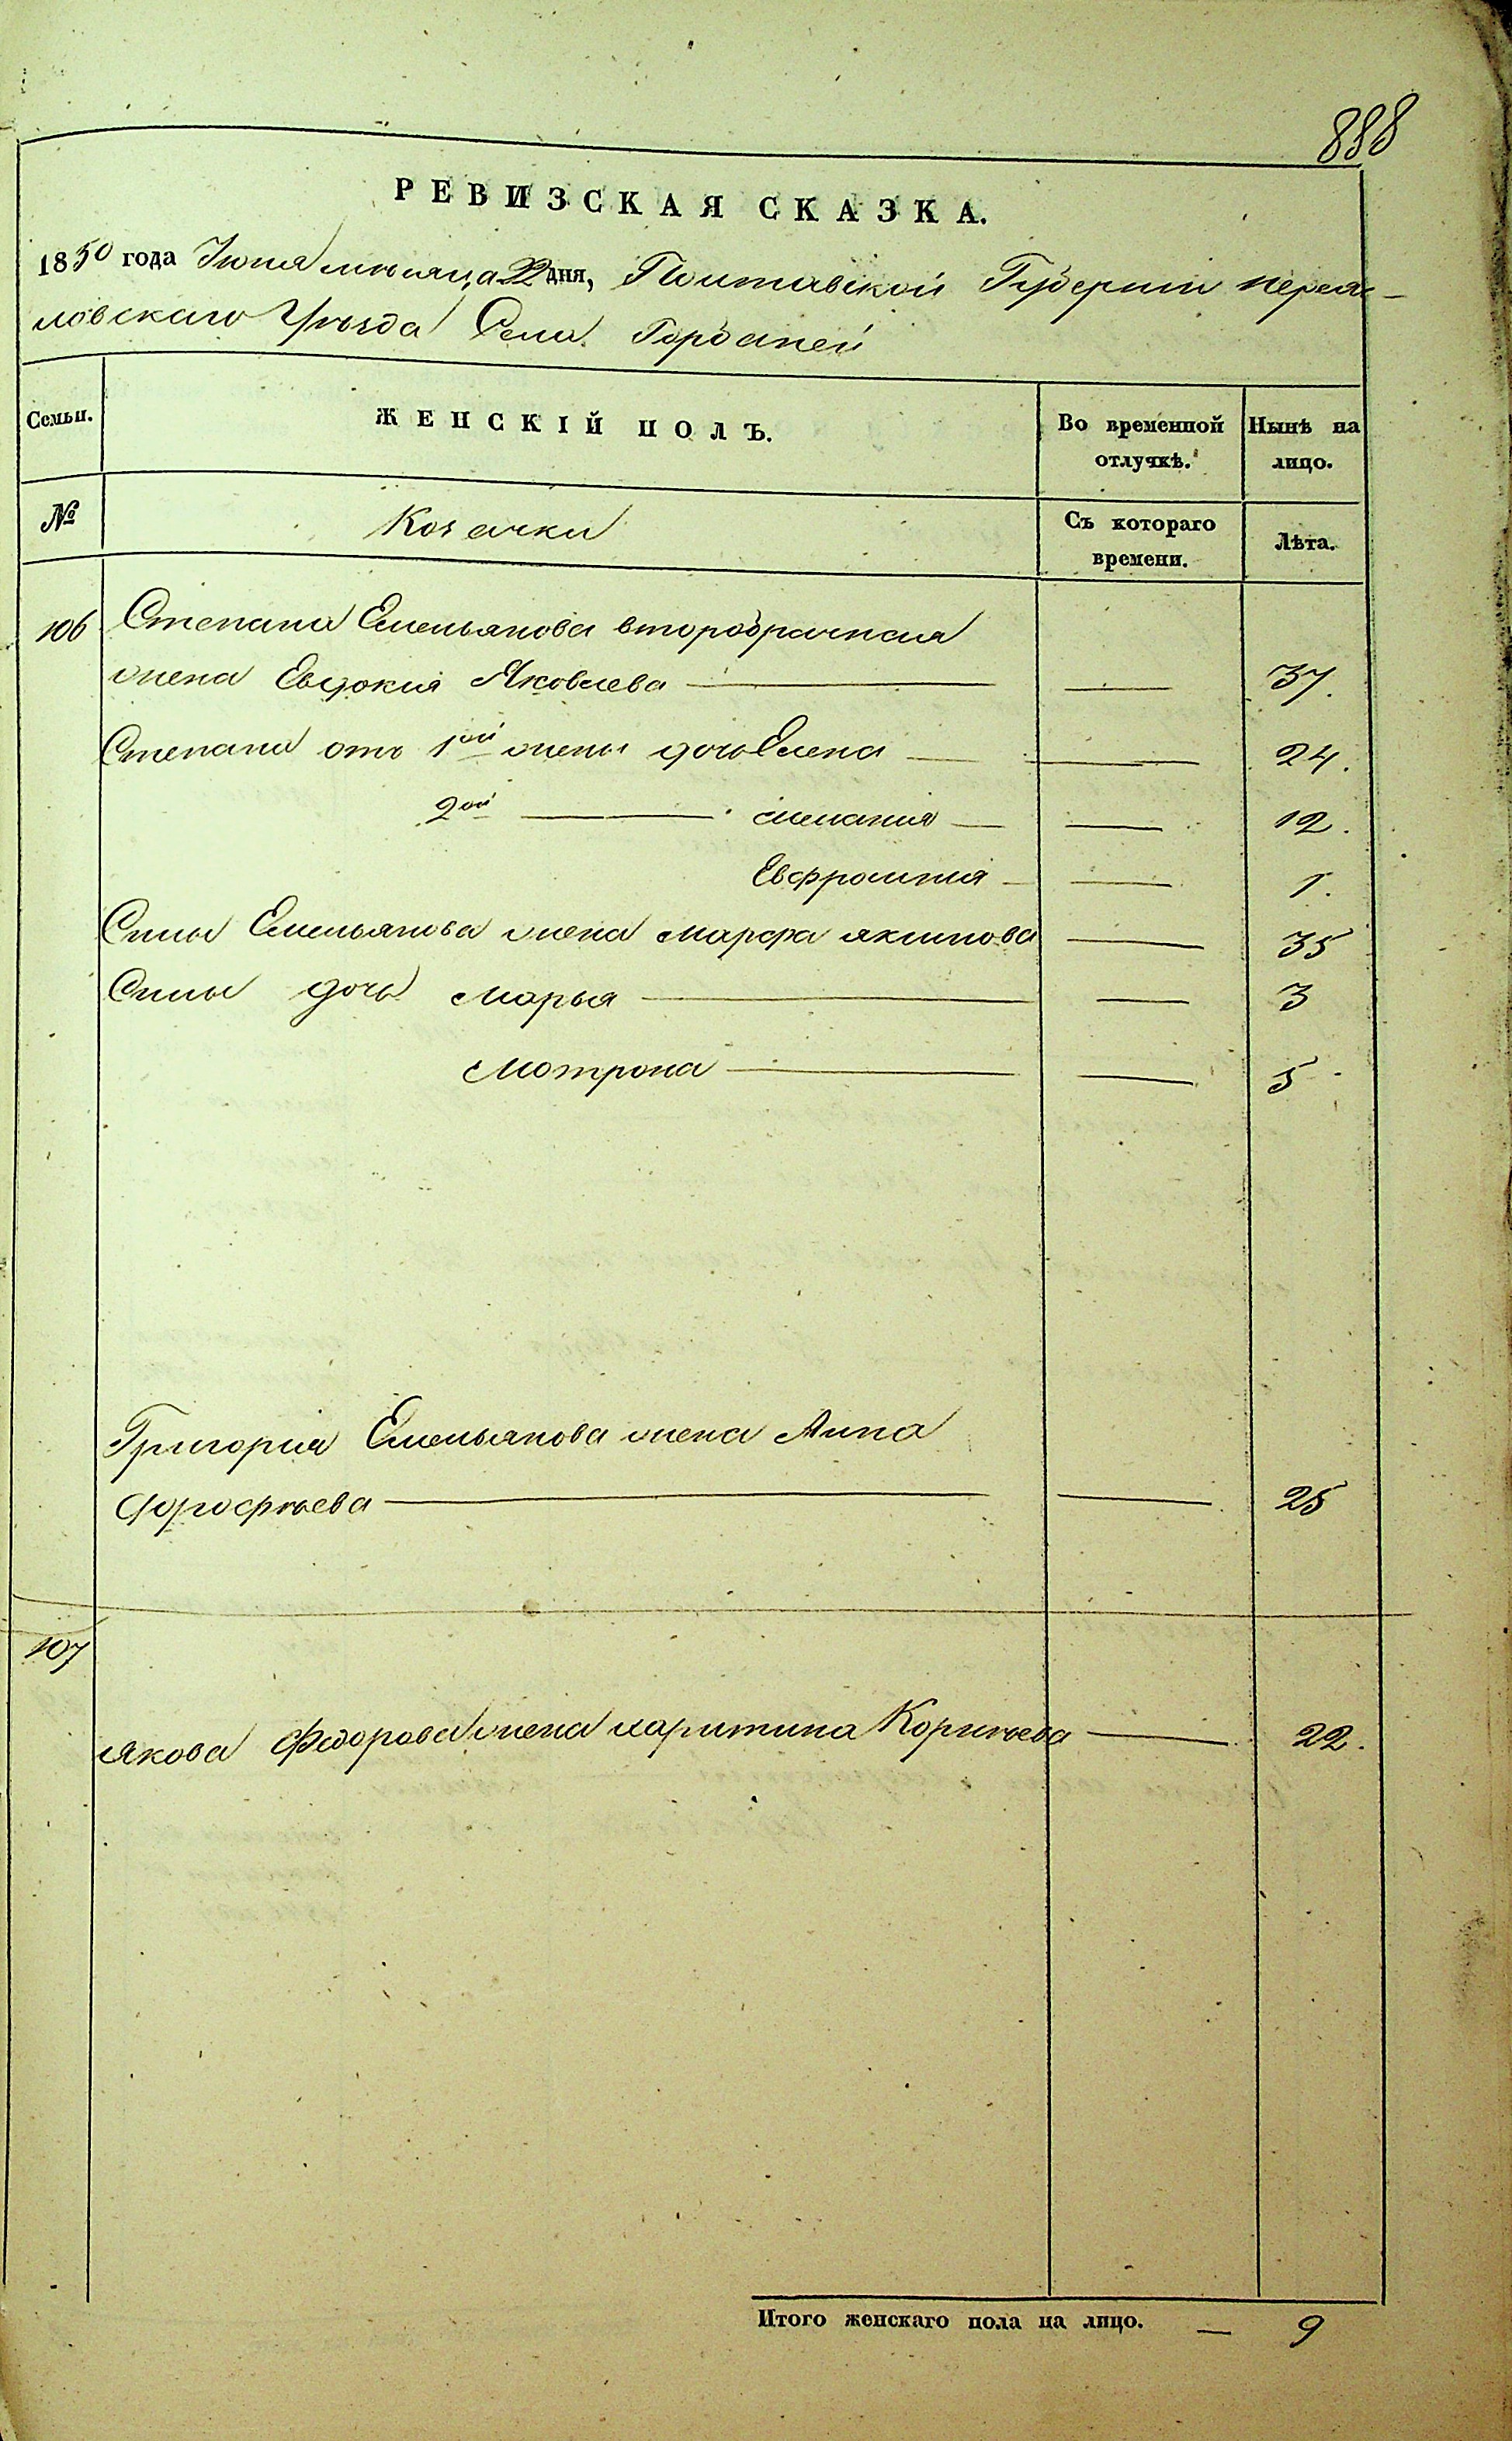 888
РЕВИЗСКАЯ СКАЗКА.
1850 года Іюня месяца 22 дня, Полтавской Губерніи перея-
словскаго Уѣзда Села Горбаней
Семьи. ЖЕНСКІЙ ПОЛЪ. Во временной отлучкѣ. Нынѣ на лицо.
№ Козачки Съ котораго времени. Лѣта.
106 Степана Емельянова второбрачная
жена Евдокия Яковлева — — 37.
Степана отъ 1ой жены дочь Елена — — 24.
2ой — мелания — — 12.
Евфросиния — — 1.
Силы Емельянова жена марфа якимова — 35
Силы дочь Марья — — 3
Мотрона — — 5
Григория Емельянова жена Анна
дорофѣева — — 25
107
якова Федорова жена харитина Корнѣева — 22.
Итого женскаго пола на лицо. — 9